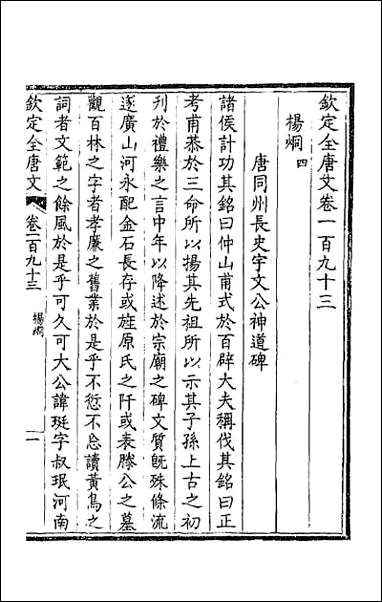 欽定全唐文卷一百九十三
楊烱 四
唐同州長史宇文公神道碑
諸侯計功其銘曰仲山甫式於百辟大夫稱伐其銘曰正
考甫恭於三命所以揚其先祖所以示其子孫上古之初
刋於禮樂之言中年以降述於宗廟之碑文質旣殊條流
遂廣山河永配金石長存或旌原氏之阡或表滕公之墓
觀百林之字者孝廉之舊業於是乎不愆不忘讀黃鳥之
詞者文範之餘風於是乎可久可大公諱珽字叔珉河南
欽定全唐文 卷一百九十三 楊烱 一